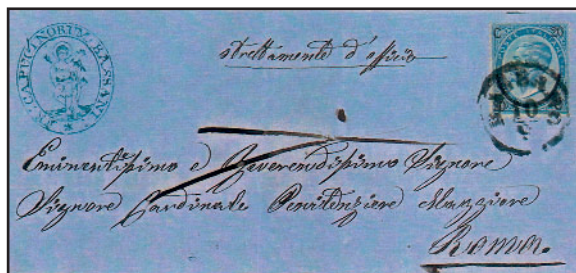 CAPUCINORUM BASSANI
strettamente d'officio
C 20
10
Eminentissimo e Reverendissimo Signore
Signore Cardinale Penitenziere Maggiore
Roma.